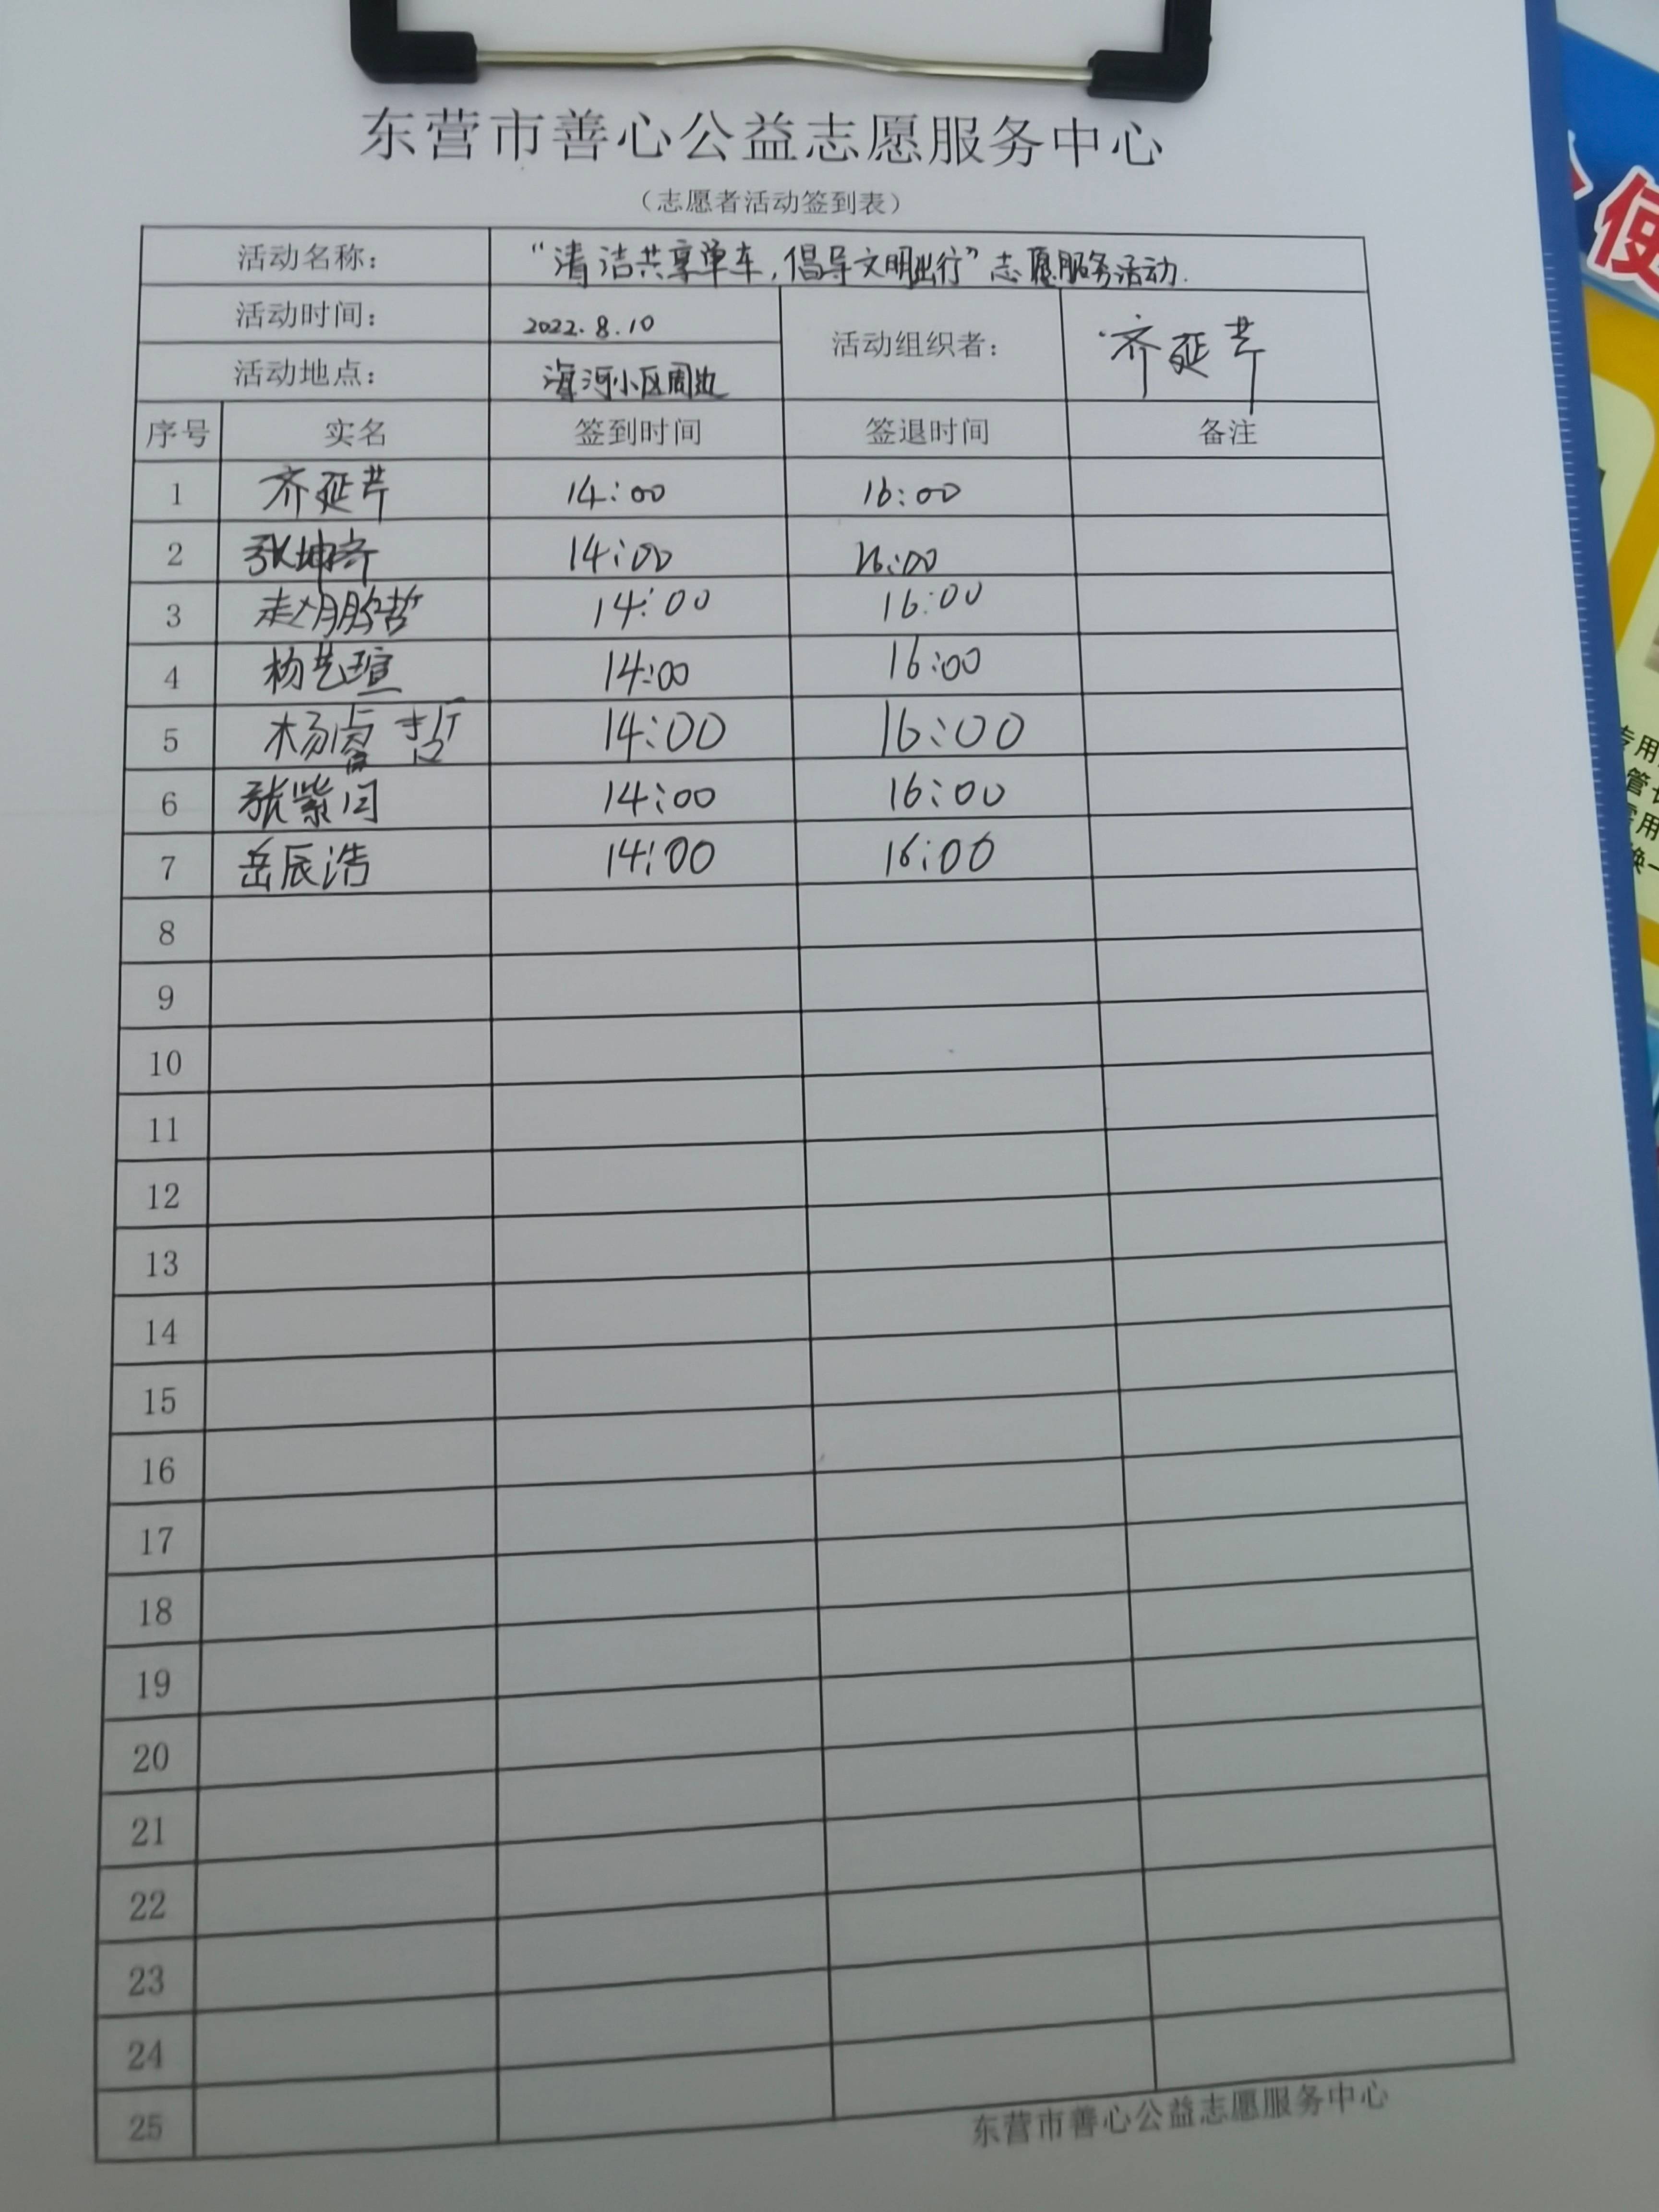 东营市善心公益志愿服务中心
（志愿者活动签到表）
活动名称： “清洁共享单车，倡导文明出行”志愿服务活动.
活动时间： 2022.8.10 活动组织者： 齐延芹
活动地点： 海河小区周边
序号 实名 签到时间 签退时间 备注
1 齐延芹 14:00 16:00
2 张坤齐 14:00 16:00
3 赵朋 14:00 16:00
4 杨艺瑄 14:00 16:00
5 杨睿哲 14:00 16:00
6 张紫闫 14:00 16:00
7 岳辰浩 14:00 16:00
8
9
10
11
12
13
14
15
16
17
18
19
20
21
22
23
24
25
东营市善心公益志愿服务中心
使
专用
管
用
换一